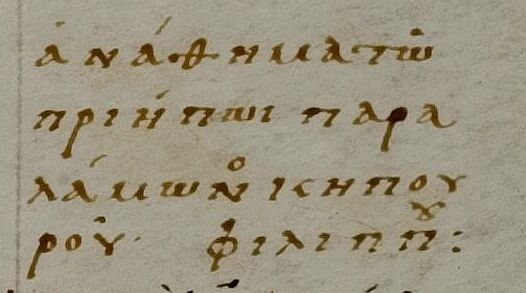 ἀνάθημα τῶ
πριήπωι παρα
λάμωνο κηπου
ροῦ· φιλιππου: